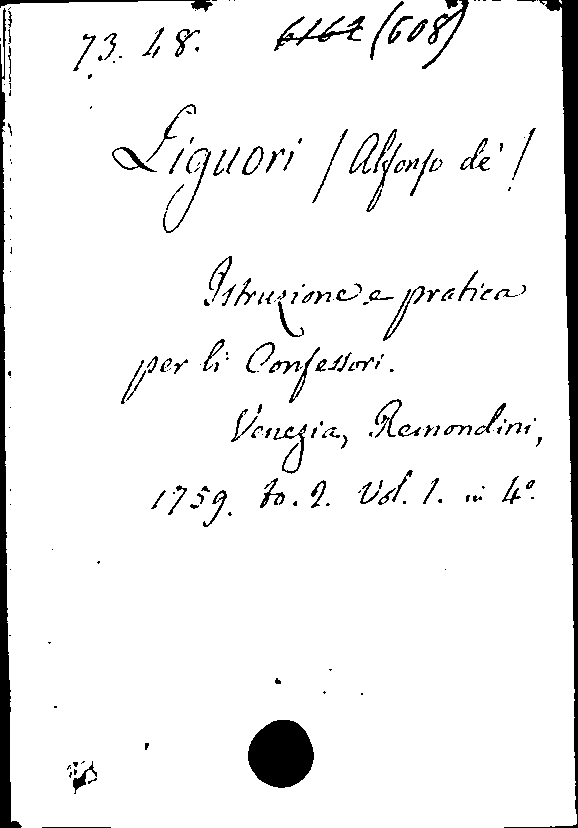 73. 48. 6162 (608)
Liguori / Alfonso de' /
Istruzione e pratica
per li Confessori.
Venezia, Remondini,
1759. to. 2. Vol. 1. in 4°.